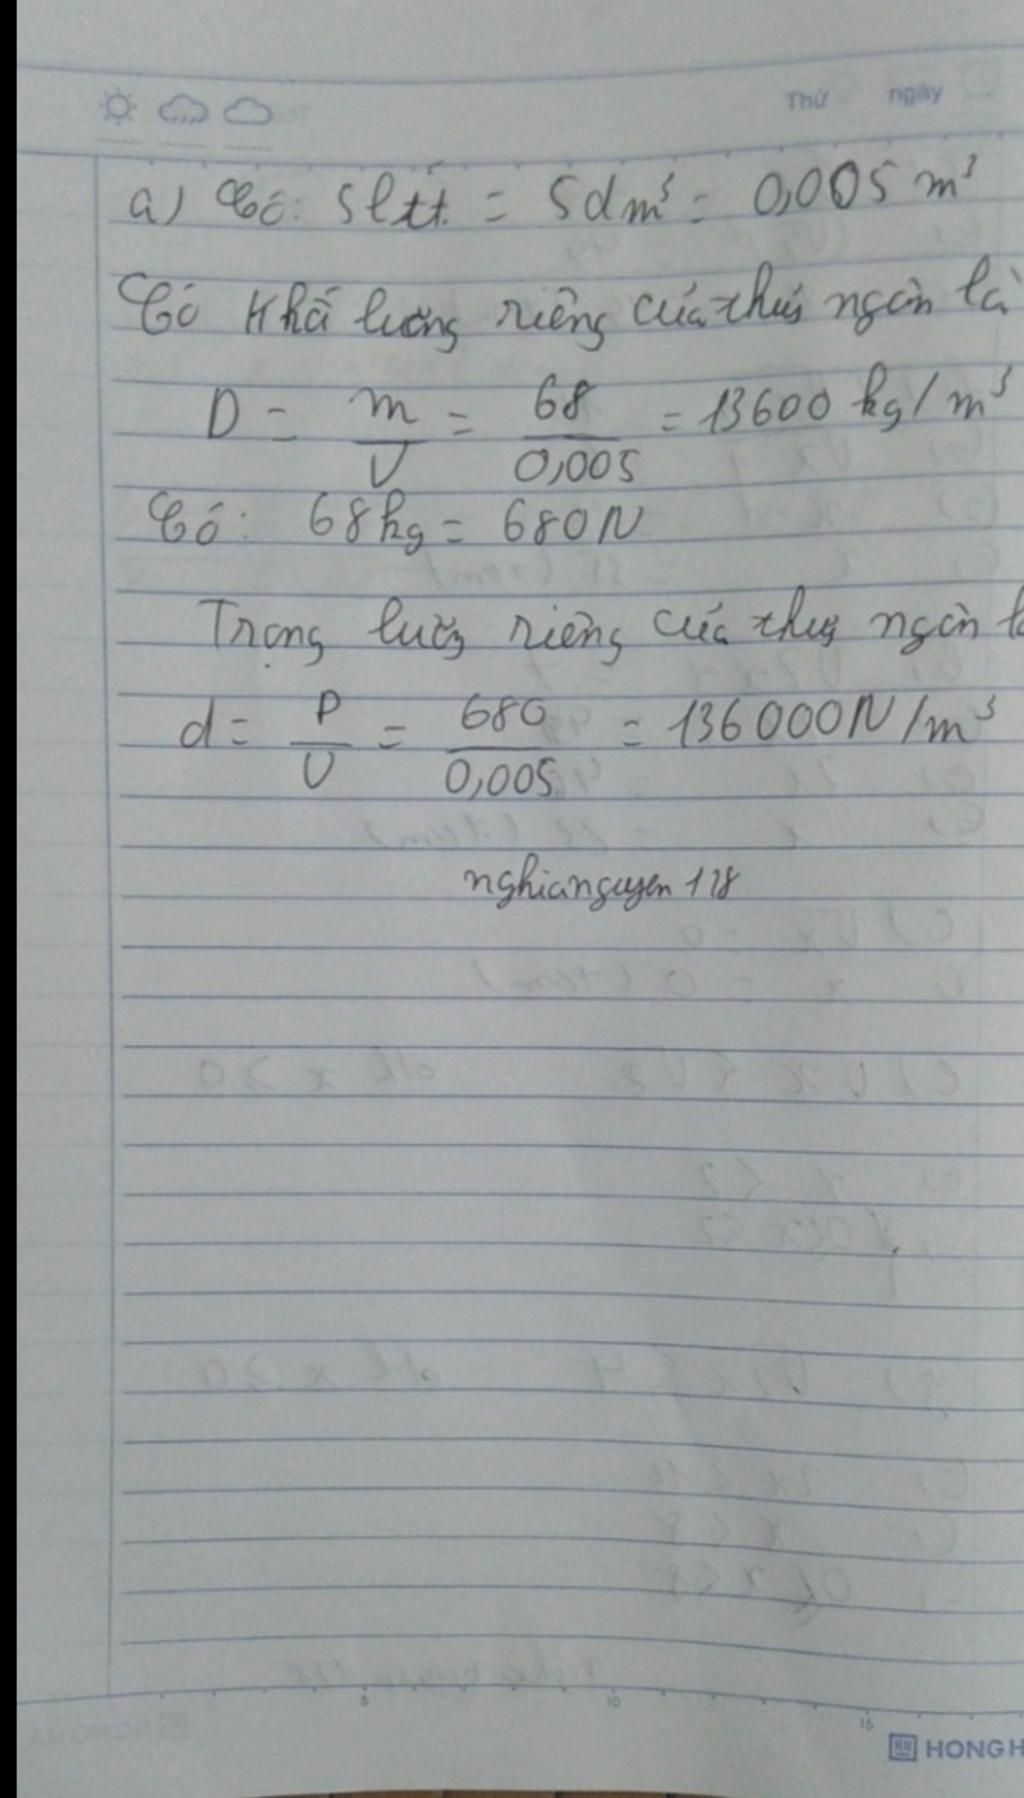 Thứ ngày
a) Có: 5 lít = 5dm³ = 0,005 m³
Có khối lượng riêng của thuỷ ngân là
D = m/V = 68/0,005 = 13600 kg/m³
Có: 68kg = 680N
Trọng lượng riêng của thuỷ ngân
d = P/V = 680/0,005 = 136000N/m³
nghianguyen 118
5 10 15
HONG H